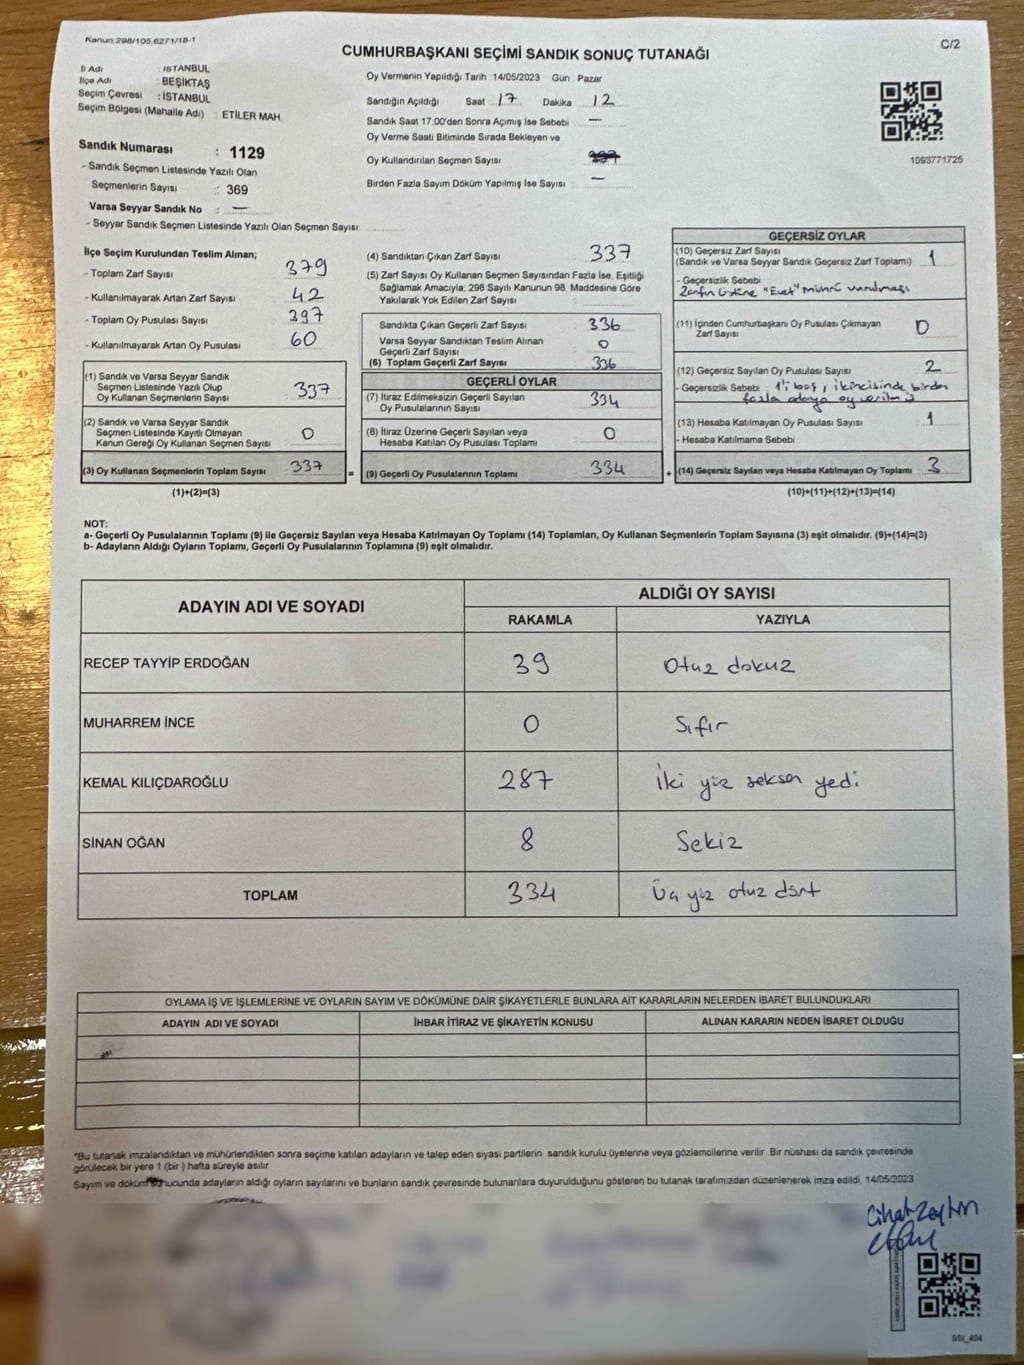 Kanun:298/105,6271/18-1
C/2
CUMHURBAŞKANI SEÇİMİ SANDIK SONUÇ TUTANAĞI
İl Adı : İSTANBUL
İlçe Adı : BEŞİKTAŞ
Seçim Çevresi : İSTANBUL
Seçim Bölgesi (Mahalle Adı) : ETİLER MAH
Sandık Numarası : 1129
- Sandık Seçmen Listesinde Yazılı Olan
Seçmenlerin Sayısı : 369
Varsa Seyyar Sandık No : —
- Seyyar Sandık Seçmen Listesinde Yazılı Olan Seçmen Sayısı:
Oy Vermenin Yapıldığı Tarih 14/05/2023 Gün Pazar
Sandığın Açıldığı Saat 17 Dakika 12
Sandık Saat 17:00'den Sonra Açımış İse Sebebi —
Oy Verme Saati Bitiminde Sırada Bekleyen ve
Oy Kullandırılan Seçmen Sayısı
Birden Fazla Sayım Döküm Yapılmış İse Sayısı —
1093771725
İlçe Seçim Kurulundan Teslim Alınan;
- Toplam Zarf Sayısı 379
- Kullanılmayarak Artan Zarf Sayısı 42
- Toplam Oy Pusulası Sayısı 397
- Kullanılmayarak Artan Oy Pusulası 60
(1) Sandık ve Varsa Seyyar Sandık
Seçmen Listesinde Yazılı Olup
Oy Kullanan Seçmenlerin Sayısı 337
(2) Sandık ve Varsa Seyyar Sandık
Seçmen Listesinde Kayıtlı Olmayan
Kanun Gereği Oy Kullanan Seçmen Sayısı 0
(3) Oy Kullanan Seçmenlerin Toplam Sayısı 337 =
(1)+(2)=(3)
(4) Sandıktan Çıkan Zarf Sayısı 337
(5) Zarf Sayısı Oy Kullanan Seçmen Sayısından Fazla İse, Eşitliği
Sağlamak Amacıyla; 298 Sayılı Kanunun 98. Maddesine Göre
Yakılarak Yok Edilen Zarf Sayısı :
Sandıkta Çıkan Geçerli Zarf Sayısı 336
Varsa Seyyar Sandıktan Teslim Alınan
Geçerli Zarf Sayısı 0
(6) Toplam Geçerli Zarf Sayısı 336
GEÇERLİ OYLAR
(7) İtiraz Edilmeksizin Geçerli Sayılan
Oy Pusulalarının Sayısı 334
(8) İtiraz Üzerine Geçerli Sayılan veya
Hesaba Katılan Oy Pusulası Toplamı 0
(9) Geçerli Oy Pusulalarının Toplamı 334 +
GEÇERSİZ OYLAR
(10) Geçersiz Zarf Sayısı
(Sandık ve Varsa Seyyar Sandık Geçersiz Zarf Toplamı) 1
- Geçersizlik Sebebi
Zarfın üstüne "Evet" mührü vurulması
(11) İçinden Cumhurbaşkanı Oy Pusulası Çıkmayan
Zarf Sayısı 0
(12) Geçersiz Sayılan Oy Pusulası Sayısı 2
- Geçersizlik Sebebi 1'i boş, ikincisinde birden
fazla adaya oy verilmiş
(13) Hesaba Katılmayan Oy Pusulası Sayısı 1
- Hesaba Katılmama Sebebi
(14) Geçersiz Sayılan veya Hesaba Katılmayan Oy Toplamı 3
(10)+(11)+(12)+(13)=(14)
NOT:
a- Geçerli Oy Pusulalarının Toplamı (9) ile Geçersiz Sayılan veya Hesaba Katılmayan Oy Toplamı (14) Toplamları, Oy Kullanan Seçmenlerin Toplam Sayısına (3) eşit olmalıdır. (9)+(14)=(3)
b- Adayların Aldığı Oyların Toplamı, Geçerli Oy Pusulalarının Toplamına (9) eşit olmalıdır.
ADAYIN ADI VE SOYADI
ALDIĞI OY SAYISI
RAKAMLA YAZIYLA
RECEP TAYYİP ERDOĞAN 39 Otuz dokuz
MUHARREM İNCE 0 Sıfır
KEMAL KILIÇDAROĞLU 287 İki yüz seksen yedi
SİNAN OĞAN 8 Sekiz
TOPLAM 334 Üç yüz otuz dört
OYLAMA İŞ VE İŞLEMLERİNE VE OYLARIN SAYIM VE DÖKÜMÜNE DAİR ŞİKAYETLERLE BUNLARA AİT KARARLARIN NELERDEN İBARET BULUNDUKLARI
ADAYIN ADI VE SOYADI İHBAR İTİRAZ VE ŞİKAYETİN KONUSU ALINAN KARARIN NEDEN İBARET OLDUĞU
*Bu tutanak imzalandıktan ve mühürlendikten sonra seçime katılan adayların ve talep eden siyasi partilerin sandık kurulu üyelerine veya gözlemcilerine verilir .Bir nüshası da sandık çevresinde
görülecek bir yere 1 (bir ) hafta süreyle asılır
Sayım ve döküm sonucunda adayların aldığı oyların sayılarını ve bunların sandık çevresinde bulunanlara duyurulduğunu gösteren bu tutanak tarafımızdan düzenlenerek imza edildi. 14/05/2023
Cihat Zeytin